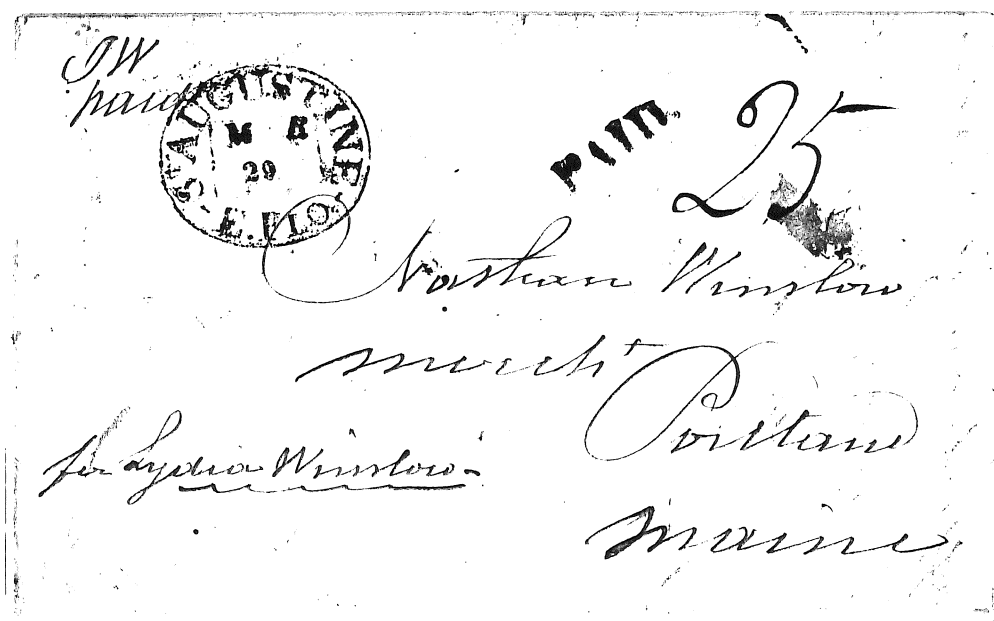 JW
paid
ST AUGUSTINE
M R
29
E. FLO.
PAID
25
Nathan Winslow
mercht
Portland
Maine
for Lydia Winslow